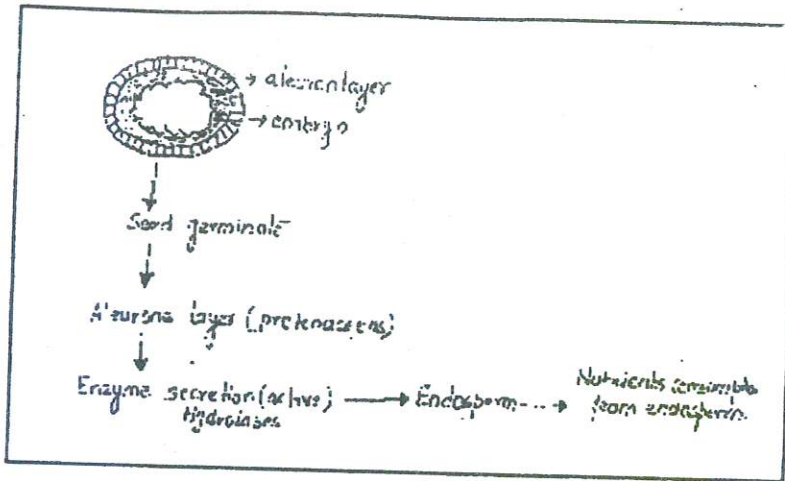 aleuron layer
embryo
Seed germinate
Aleurone layer (protenaceens)
Enzyme secretion (active)
Hydrolases
Endosperm
Nutrients
from endosperm